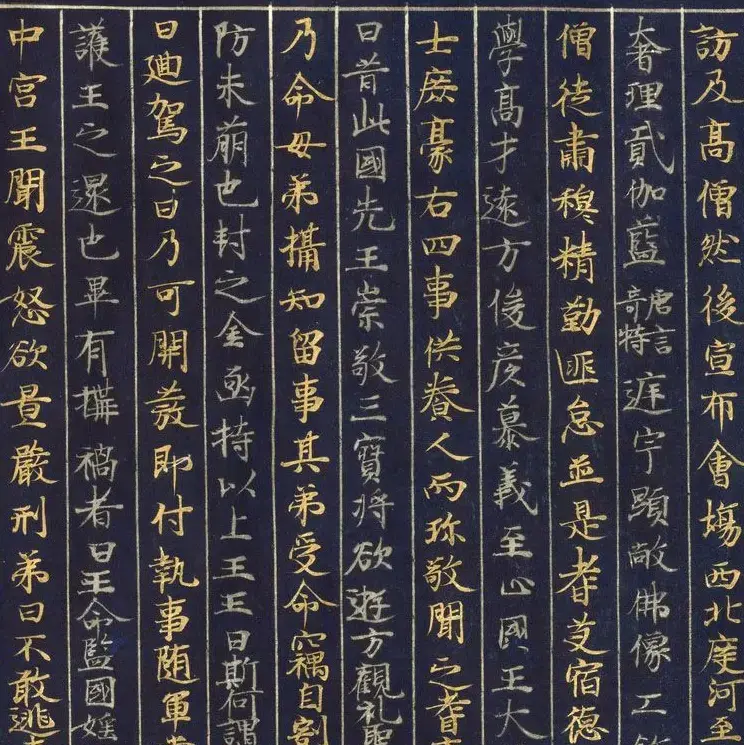 訪及髙僧然後宣布會塲西北度河至
大奢理貳伽藍唐言奇特庭宇顯敞佛像工飾
僧徒肅穆精勤匪怠並是耆艾宿德
學髙才遠方俊彦慕義至止國王大
士庶豪右四事供養人而珎敬聞之耆
曰昔此國先王崇敬三寶将欲遊方觀礼聖
乃命母弟攝知留事其弟受命竊自割
防未萌也封之金函持以上王王曰斯何謂
曰迴駕之日乃可開發即付執事随軍
護王之還也果有搆禍者曰王命監國婬
中宫王聞震怒欲置嚴刑弟曰不敢逃